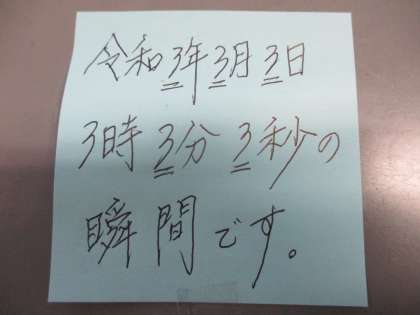 令和3年3月3日
3時3分3秒の
瞬間です。